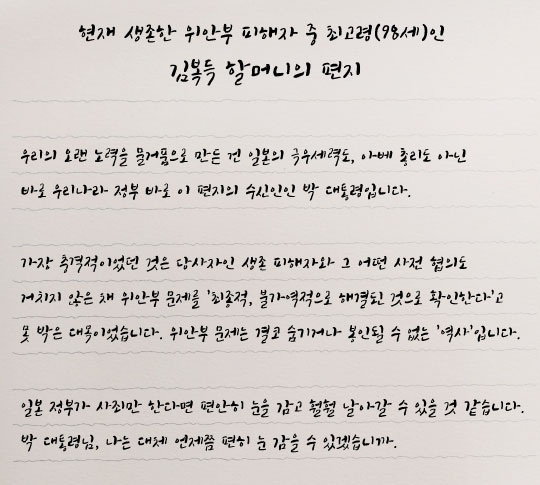 현재 생존한 위안부 피해자 중 최고령(98세)인
김복득 할머니의 편지
우리의 오랜 노력을 물거품으로 만든 건 일본의 극우세력도, 아베 총리도 아닌
바로 우리나라 정부 바로 이 편지의 수신인인 박 대통령입니다.
가장 충격적이었던 것은 당사자인 생존 피해자와 그 어떤 사전 협의도
거치지 않은 채 위안부 문제를 '최종적, 불가역적으로 해결된 것으로 확인한다'고
못 박은 대목이었습니다. 위안부 문제는 결코 숨기거나 봉인될 수 없는 '역사'입니다.
일본 정부가 사죄만 한다면 편안히 눈을 감고 훨훨 날아갈 수 있을 것 같습니다.
박 대통령님, 나는 대체 언제쯤 편히 눈 감을 수 있겠습니까.